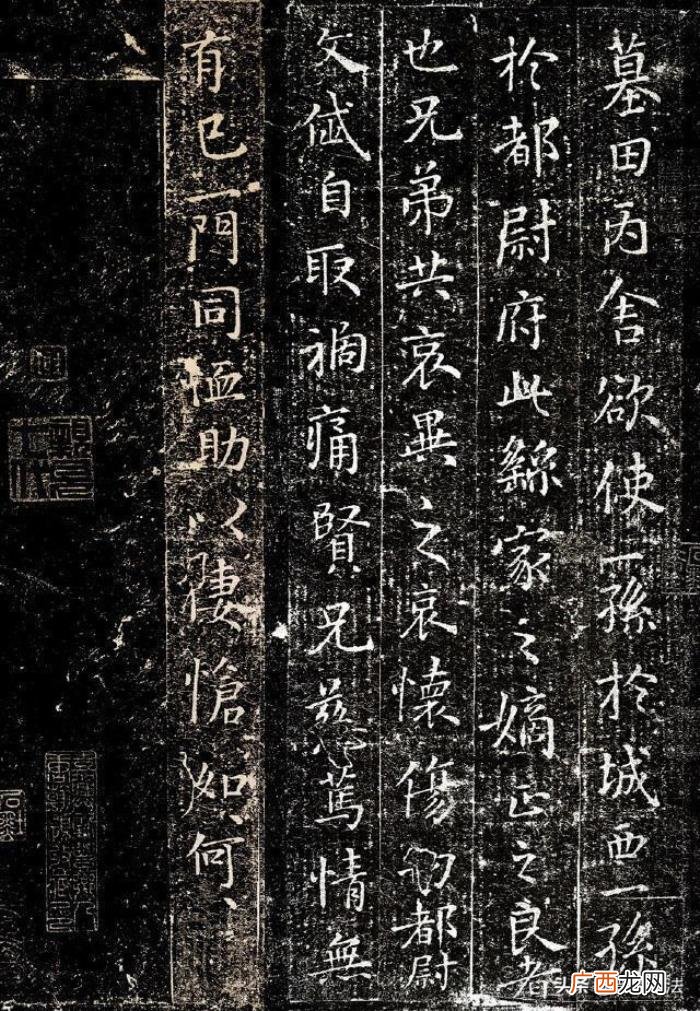 墓田丙舍欲使一孫於城西一孫
於都尉府此繇家之嫡正之良者
也兄弟共哀異之哀懷傷切都尉
文岱自取禍痛賢兄慈篤情無
有已一門同恤助以悽愴如何
头条
法
广西龙网